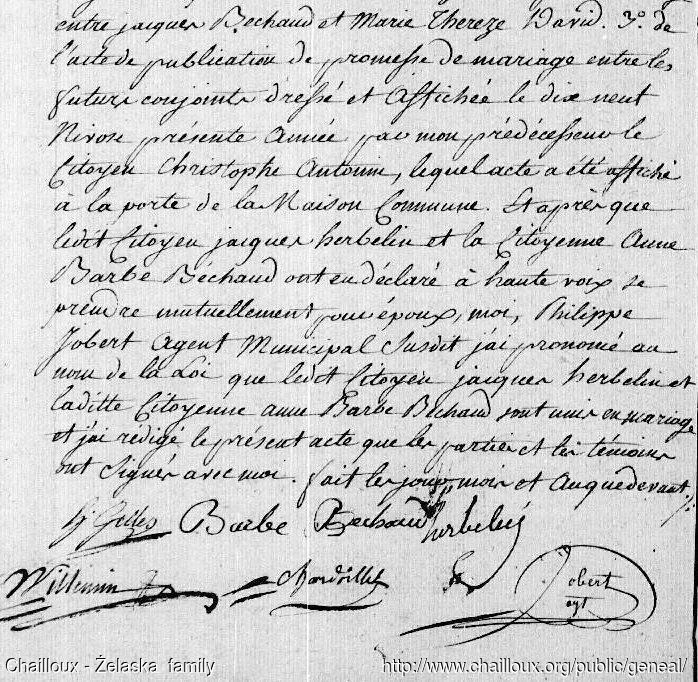 entre jacques Bechaud et Marie Thereze David. 3º. de
l'acte de publication de promesse de mariage entre les
futurs conjoints dressé et Affichée le dix neuf
Nivose présente Année par mon prédécesseur le
Citoyen Christophe Antoine, lequel acte a été affiché
à la porte de la Maison Commune. Et après que
ledit Citoyen jacques herbelin et la Citoyenne Anne
Barbe Béchaud ont eu déclaré à haute voix se
prendre mutuellement pour époux, moi, Philippe
Jobert Agent Municipal Susdit j'ai prononcé au
nom de la Loi que ledit Citoyen jacques herbelin et
laditte Citoyenne anne Barbe Béchaud sont unis en mariage
et j'ai rédigé le présent acte que les parties et les témoins
ont Signés avec moi. fait les jour, mois et An que devant
Barbe Bechaud herbelin
Willemin
Jobert
agt
Chailloux - Żelaska family
http://www.chailloux.org/public/geneal/